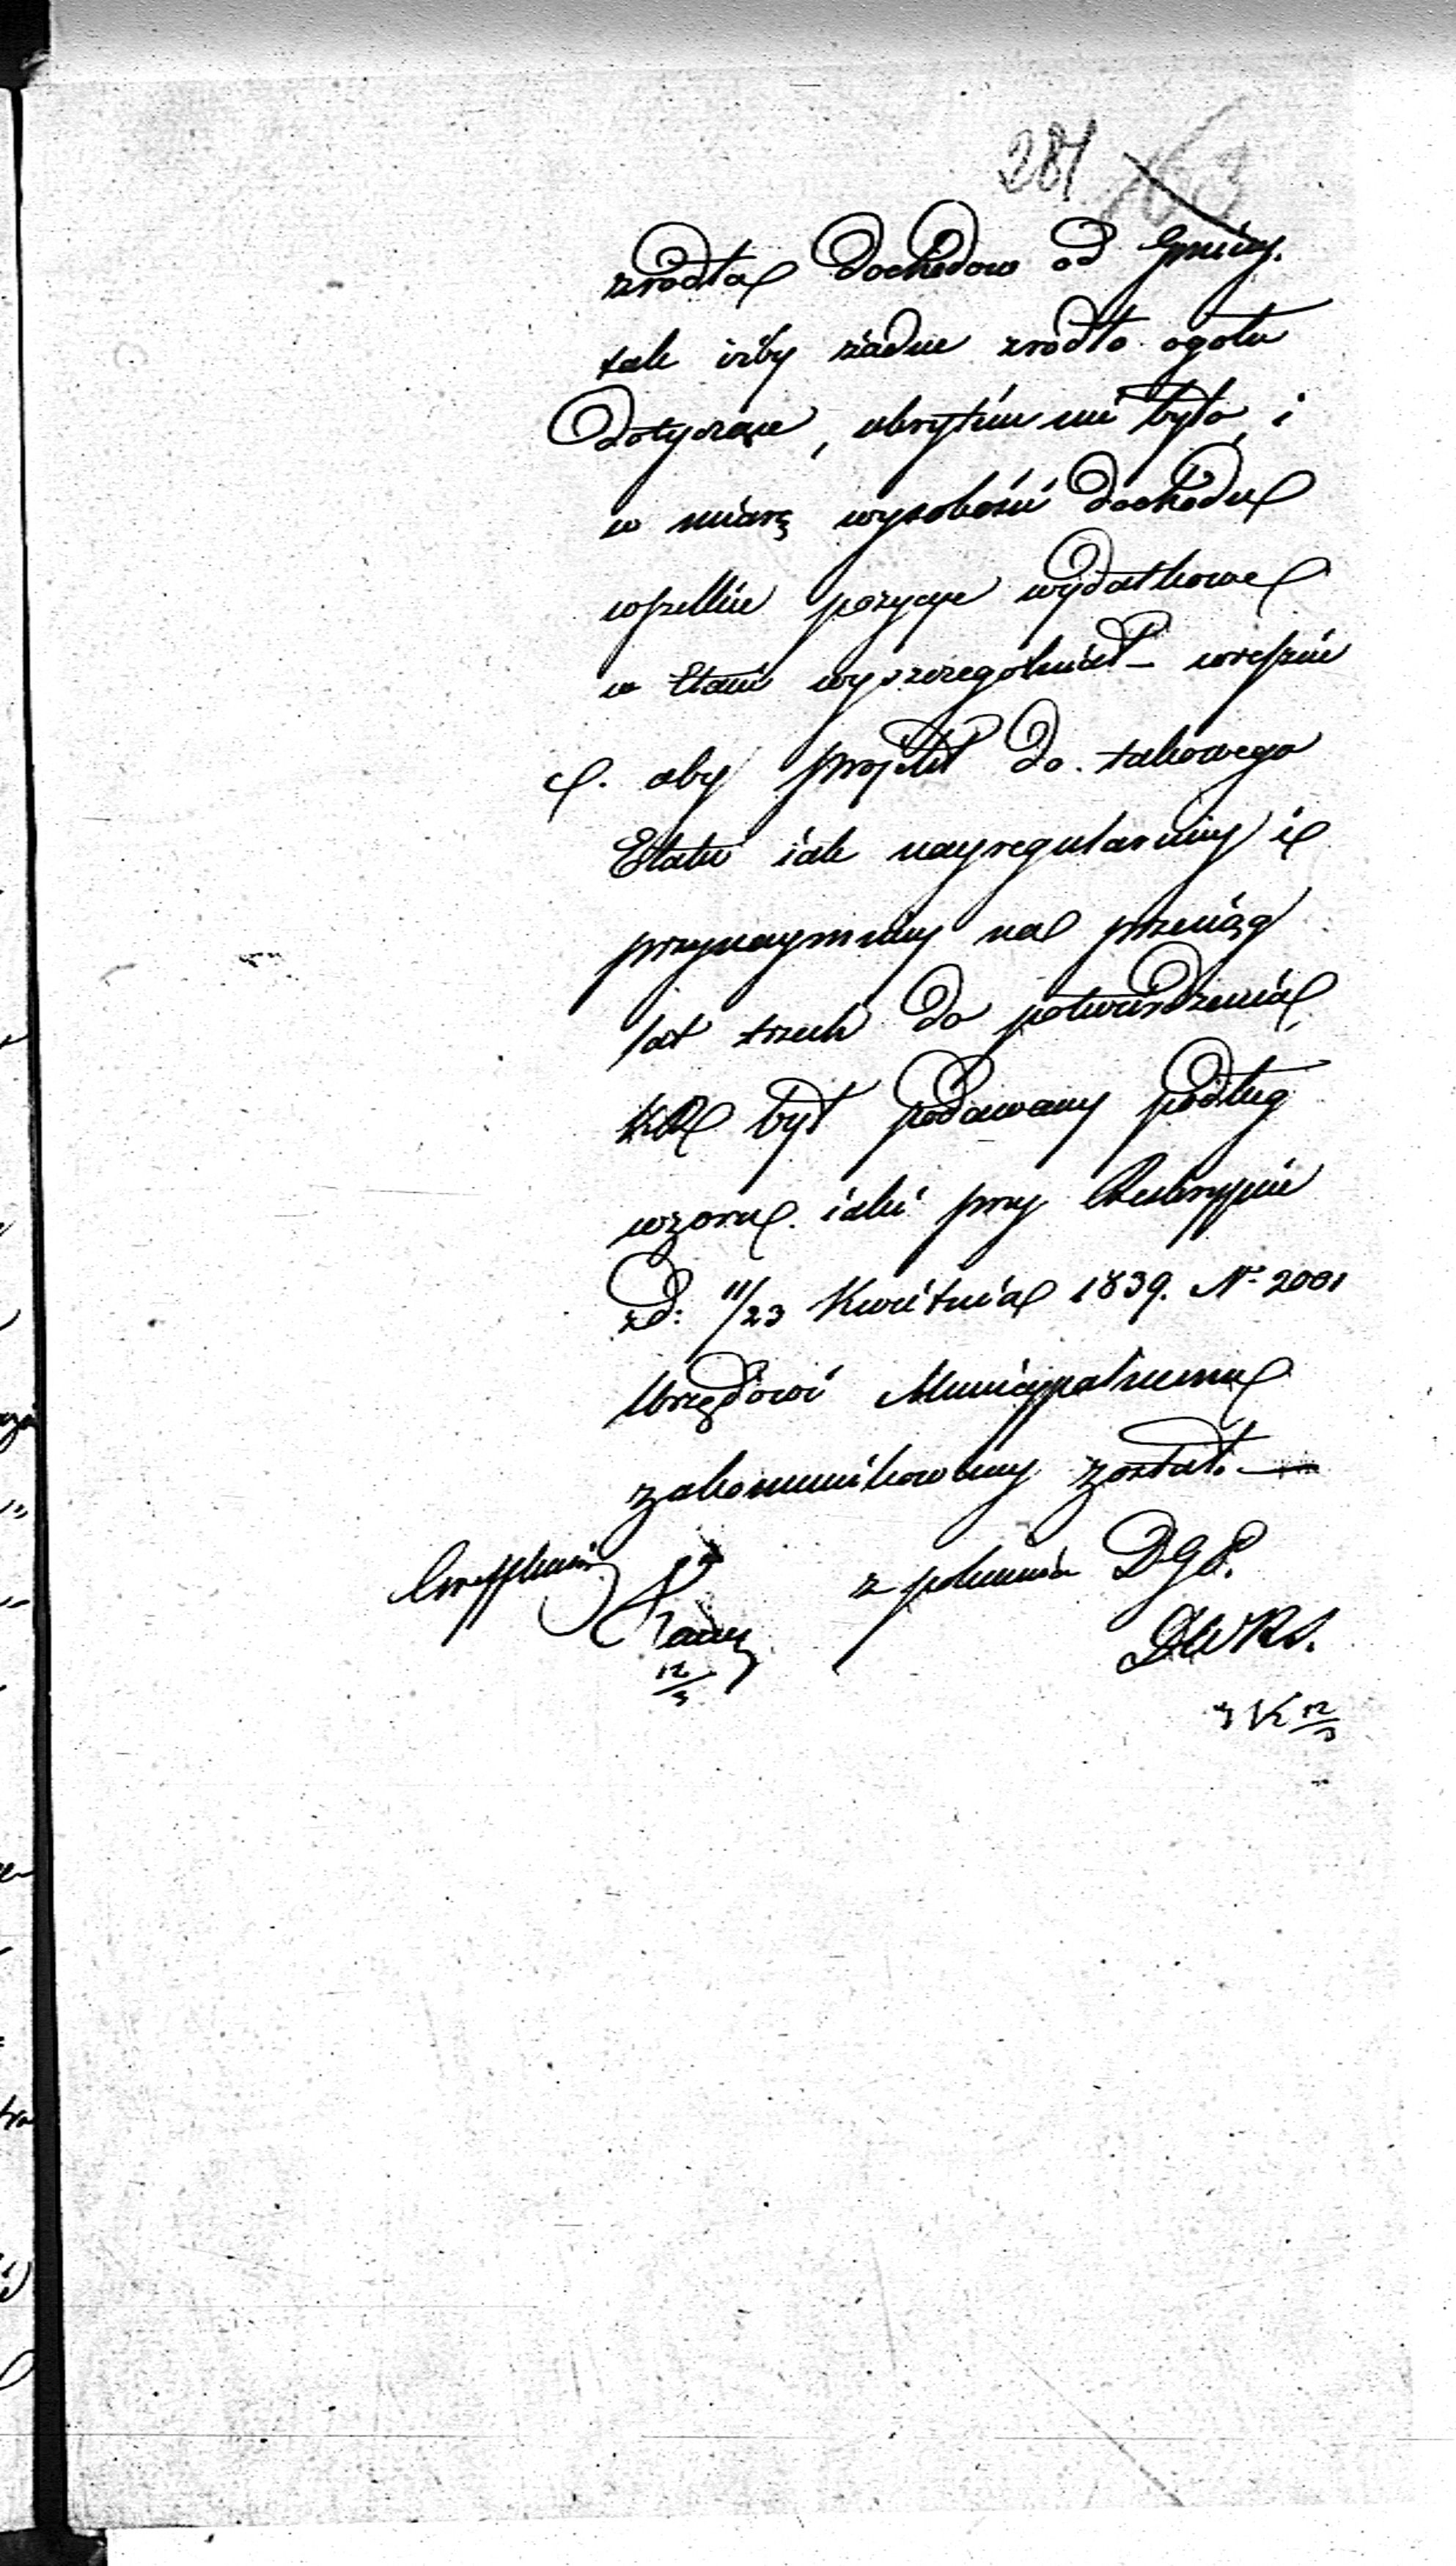 281 163
zrodła dochodow od Gminy.
tak iżby żadne zrodło ogołu
dotyczące, ukrytem nie było, i
w miarę wysokości dochodu
wszelkie pozycye wydatkowe
w Etacie wyszczegolniał – wreszcie
c. aby projekt do takowego
Etatu iak nayregularniey i
przynaymniey na przeciąg
lat trzech do potwierdzenia
KR był podawany podług
wzoru iaki przy Reskrypcie
z d: 11/23 Kwietnia 1839. N. 2001
Urzędowi Municypalnemu
zakomunikowany został. —
z polecenia DGP.
DWRS.
K 12/3
12/3